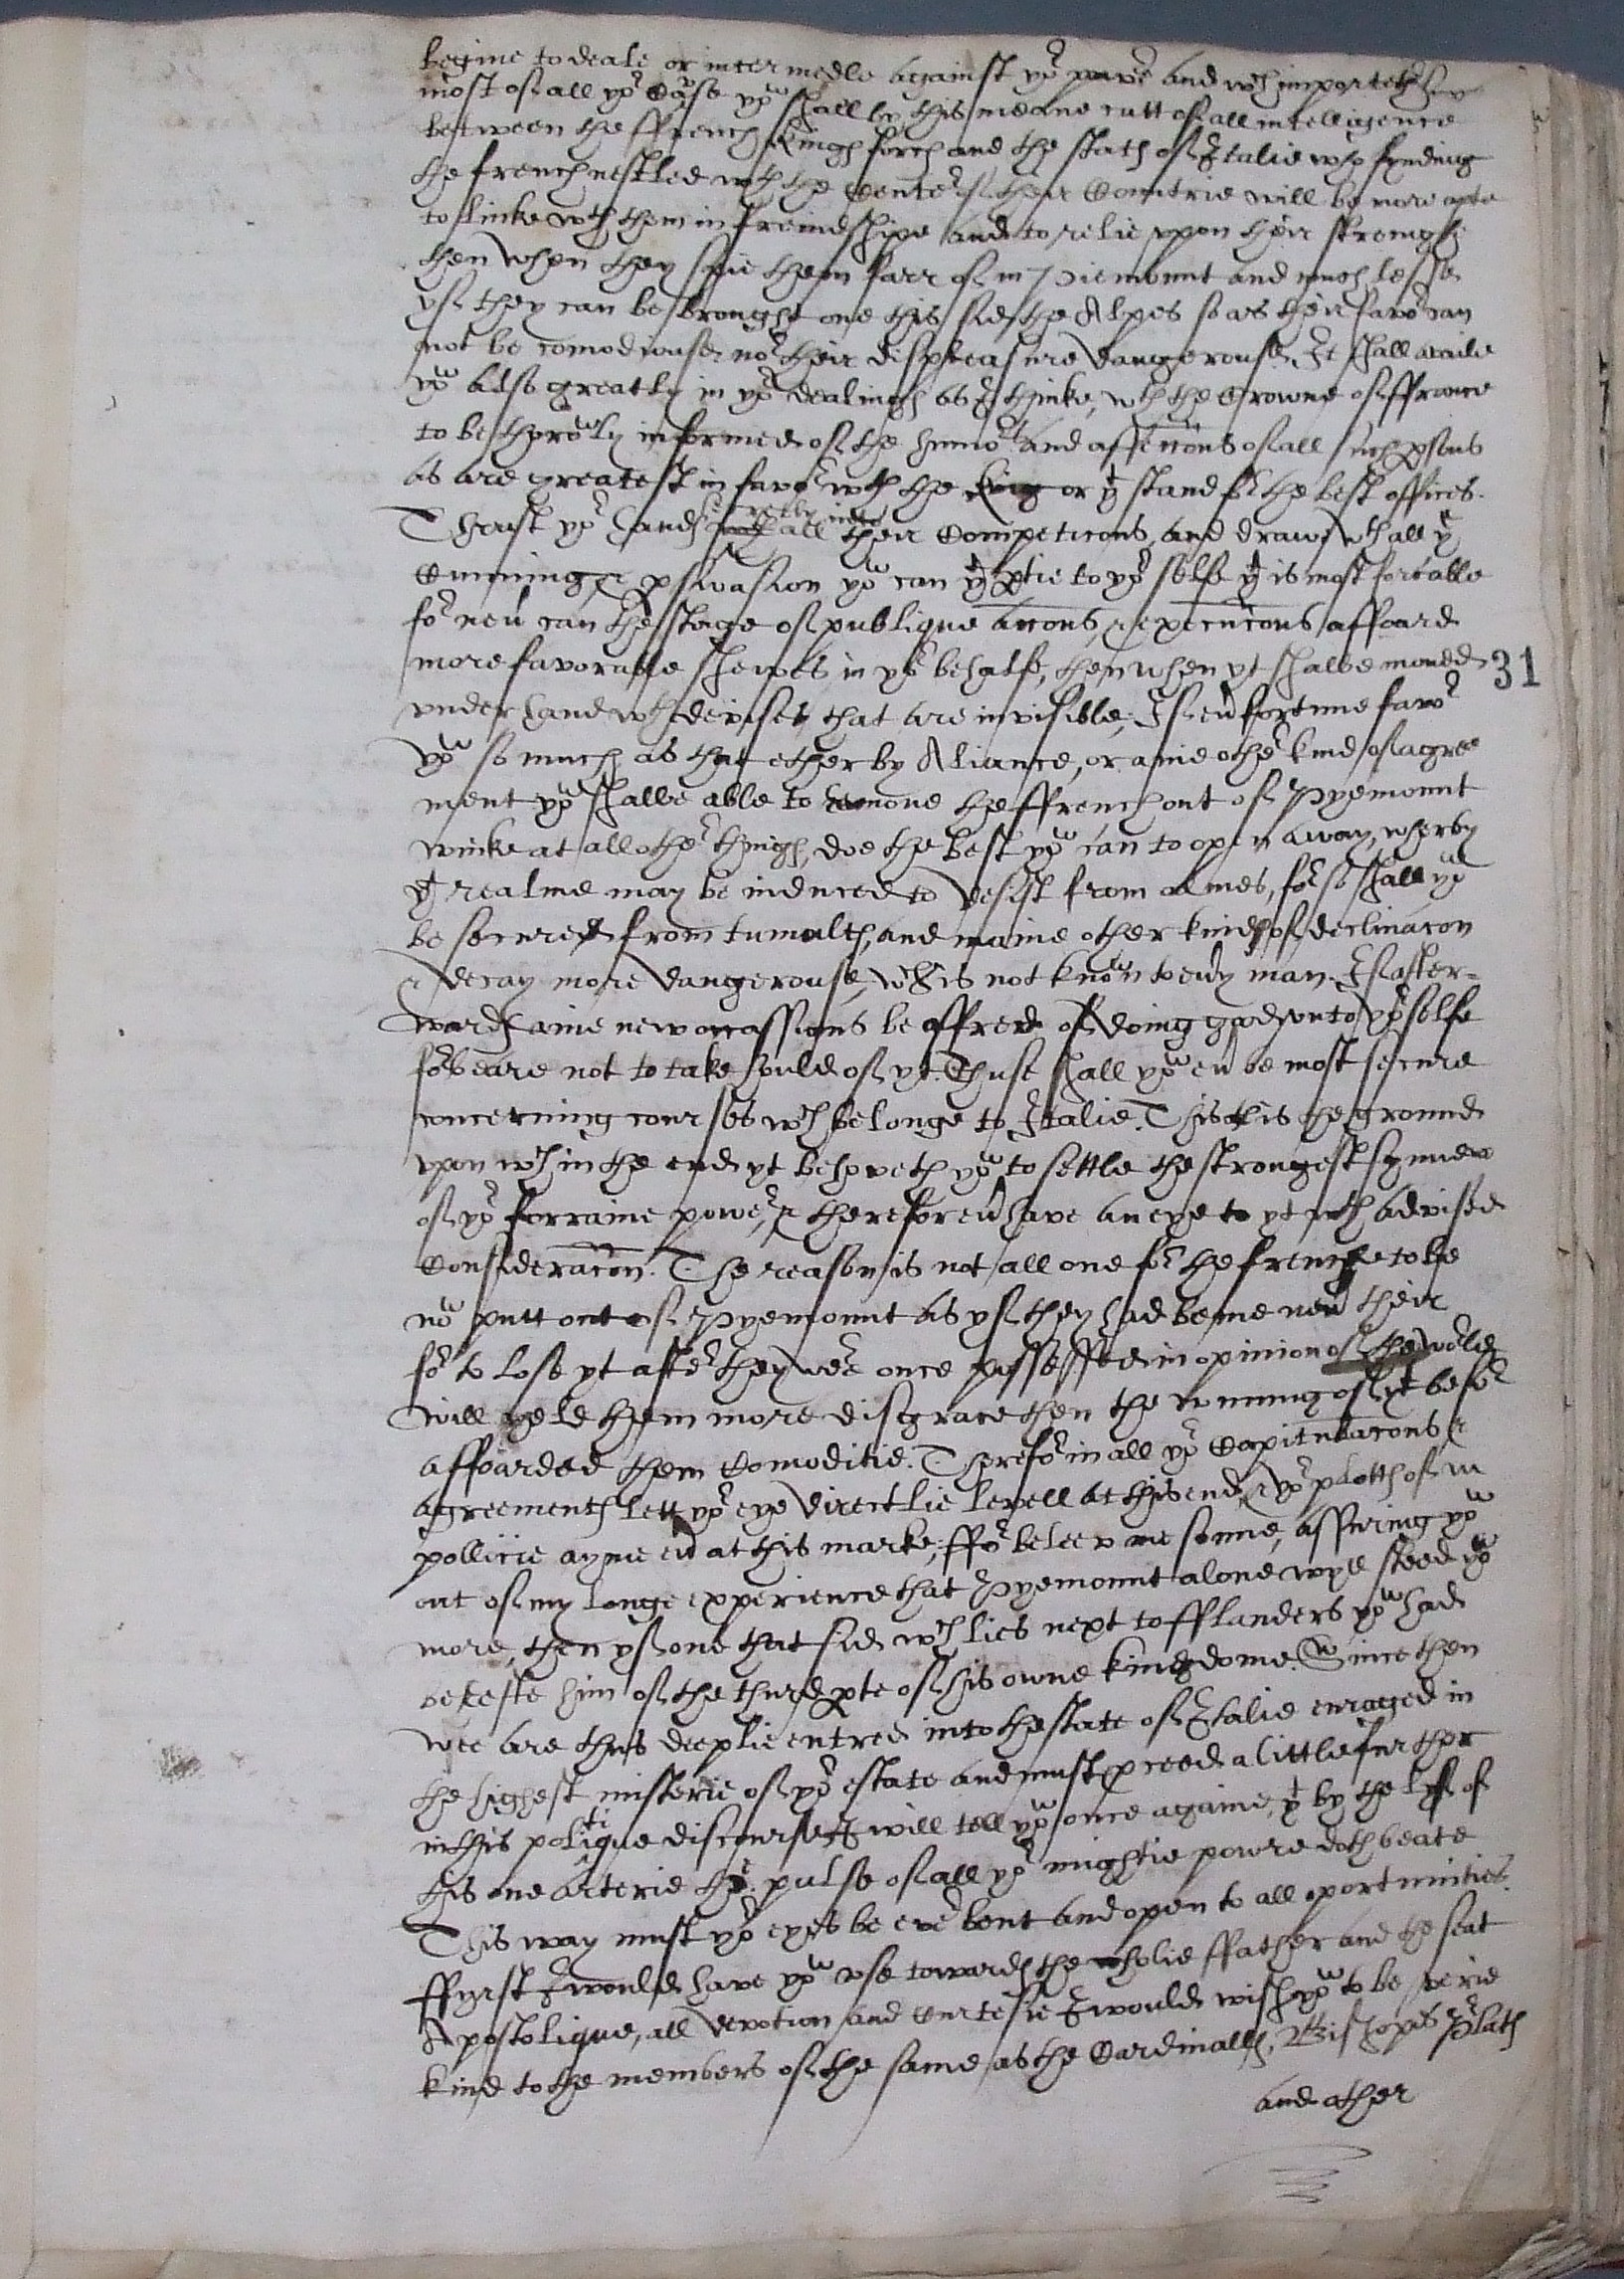 begine to deale or intermedle against yor powre and wch importeth
most of all yor Case yow shall by this meane cutt of all intelligence
between the ffrench Kings forces and the states of Italie who fynding
the french nestled wth the Center of their Countrie will be more apte
to linke wth them in freindshipe and to relie vpon their strength
then when they see them farr of in Piemount and much lesse
yf they can be brought one this side the Alpes so as their favor can
not be comodiouse nor their displeasure daungerouse. It shall availe
yow also greatly in yor dealings as I thinke, wth the Crowne of ffrance
to be throwly informed of the humors and affeccons of all such psons
as are greatest in favor wth the King or yt stand for the best offices.
Thrust yor hands secretly into all their Competicons, and draw wth all ye
Cunning & pswasion yow can yt ptie to yor selfe yt is most forcable
for neu can the stage of publique accons & execucons affoard
more favorable shewes in yor behalfe, then when yt shalbe moued
vnder hand wth devises that are invisible, If eu fortune favor
yow so much as that ether by Aliance, or anie other kind of agree
ment yow shalbe able to remoue the ffrench out of Pyemount
winke at all other things, doe the best yow can to open a way, wherby
yt realme may be induced to desist from armes, for so shall yow
be secured from tumults, and manie other kinds of declinacon
& decay more daungerouse, wch is not known to eury man. If after-
wards anie new occassions be offred of doing good vnto yor selfe
forbeare not to take hould of yt. Thus shall yow eu be most secure
concerning courses wch belonge to Italie. This is the ground
vpon wch in the end yt behoveth yow to settle the strongest synnew
of yor forraine power, & therefore eu have an eye to yt wth advised
Consideracon. The reason is not all one for the frenche to be
now putt out of Pyemount as yf they had bene neu their
for to lose yt after they were once possessed in opinion of the world
will yeld them more disgrace then the winning of yt before
affoarded them Comoditie. Therefor in all yor Capitulacons &
agreements lett yor eye directlie levell at this end, & yor plotts of
pollicie ayme eu at this marke, ffor beleev me sonne, assuring yow
out of my longe experience that Pyemount alone wyll steed yow
more, then yf one that side wch lies next to fflanders yow had
berefte him of the third pte of his owne kingdome. Since then
wee are thus deeplie entred into the state of Italie enraged in
the highest misterie of yor estate and must pceed a little further
in this politique discourse I will tell yow once againe, yt by the lyf of
this one arterie the pulse of all yor mightie powre doth beate
This way must yor eyes be ever bent and open to all oportunities.
ffyrst I would have yow vse towards the wholie ffather and the seat
Apostolique, all devotion and Curtesie I would wish yow to be verie
kind to the members of the same as the Cardinalls, Bishopes Prlats
and other
31